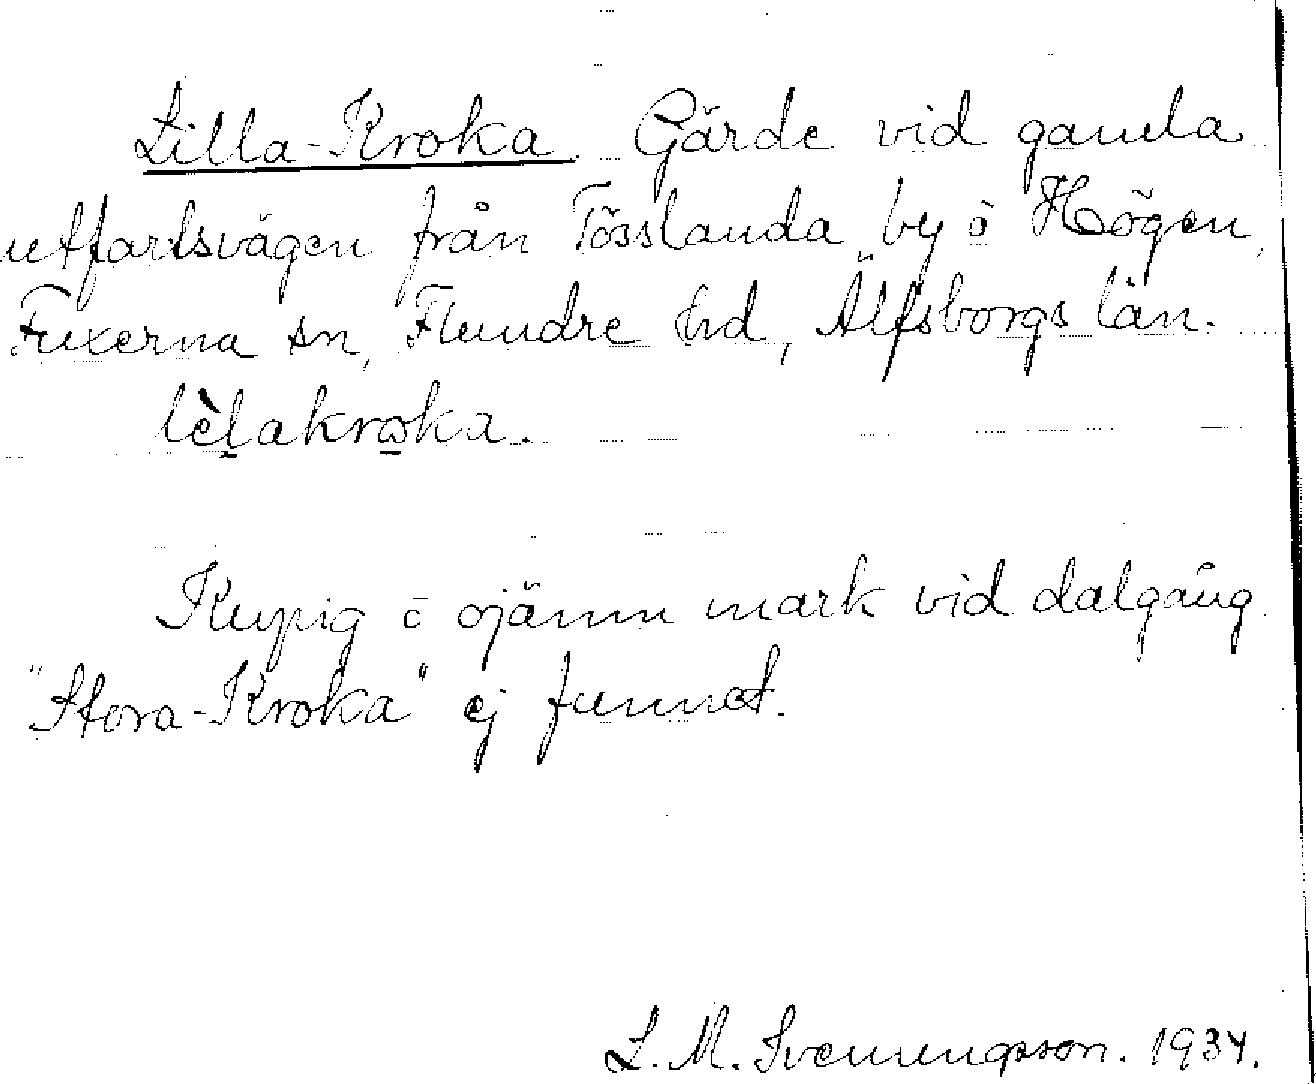 Lilla-Kroka. Gärde vid gamla
utfartsvägen från Tösslanda by å Högen,
Fuxerna sn, Flundre hd, Älfsborgs län.
lèlakroka.
Kupig å ojämn mark vid dalgång.
"Stora-Kroka" ej funnet.
L. M. Svenungsson. 1934.